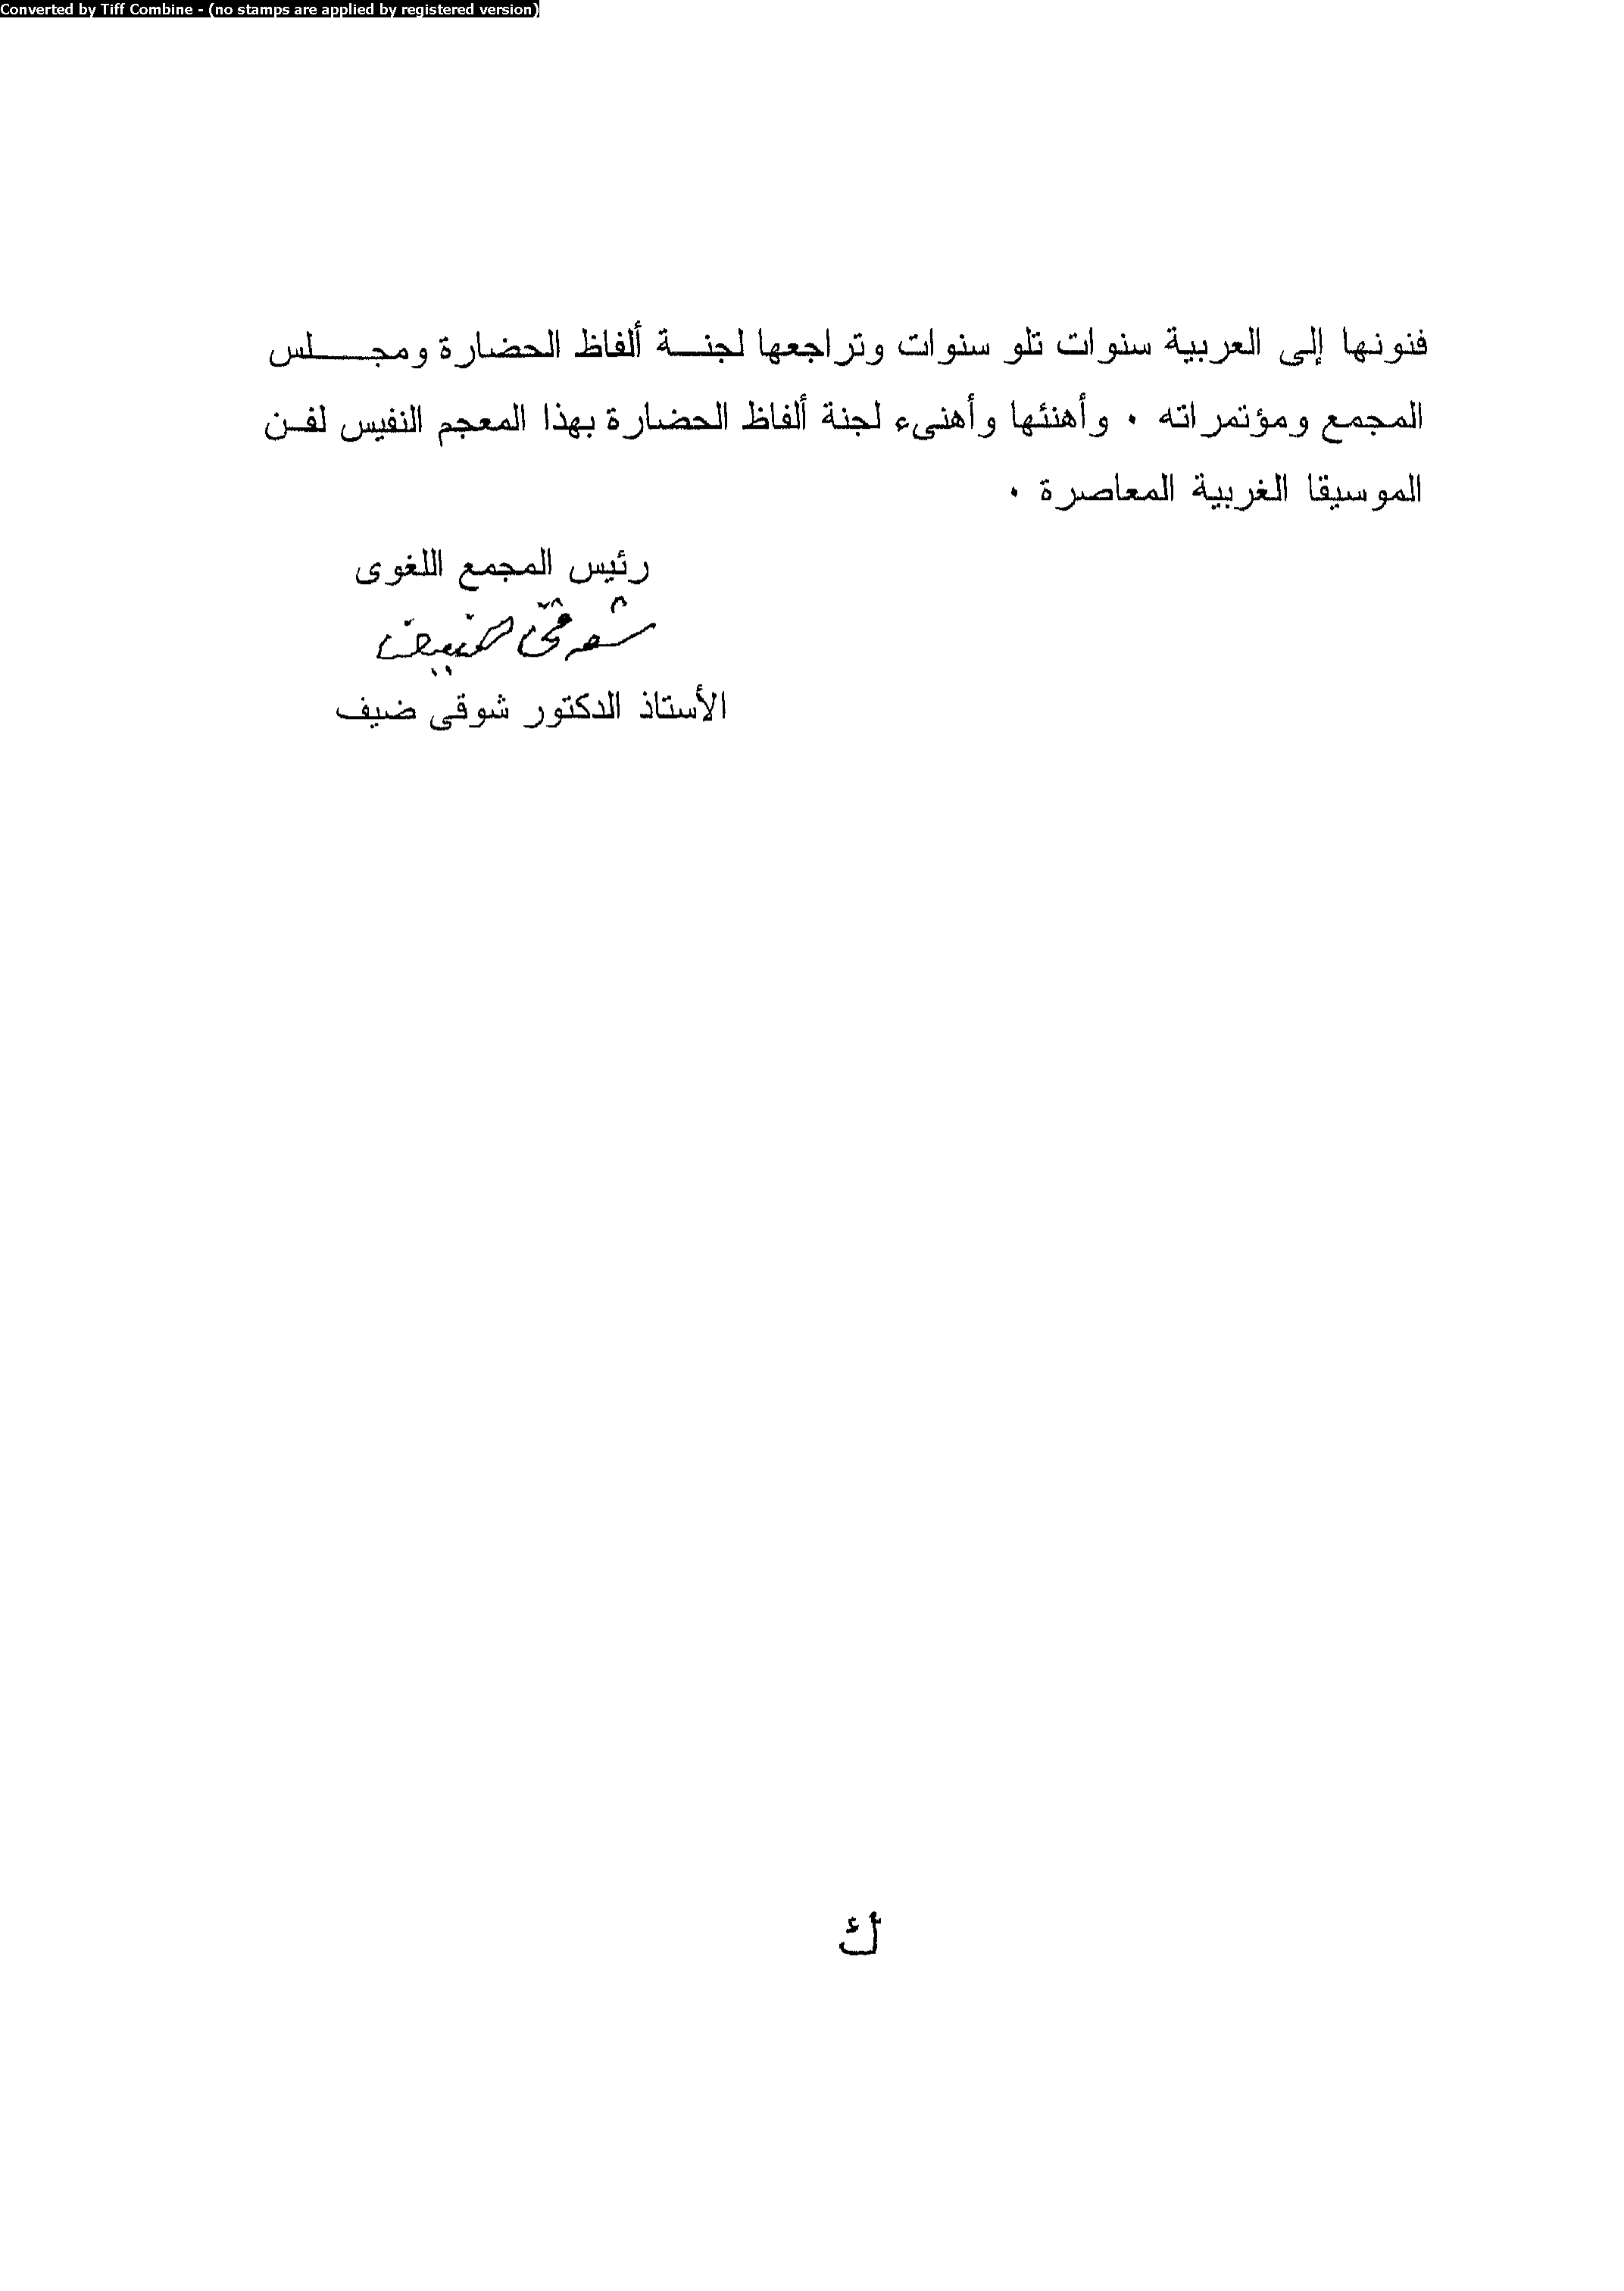 Converted by Tiff Combine - (no stamps are applied by registered version)
فنونها إلى العربية سنوات تلو سنوات وتراجعها لجنــة ألفاظ الحضارة ومجـــــلس
المجمع ومؤتمراته ٠ وأهنئها وأهنىء لجنة ألفاظ الحضارة بهذا المعجم النفيس لفــن
الموسيقا الغربية المعاصرة ٠
رئيس المجمع اللغوى
شوقى ضيف
الأستاذ الدكتور شوقى ضيف
ك